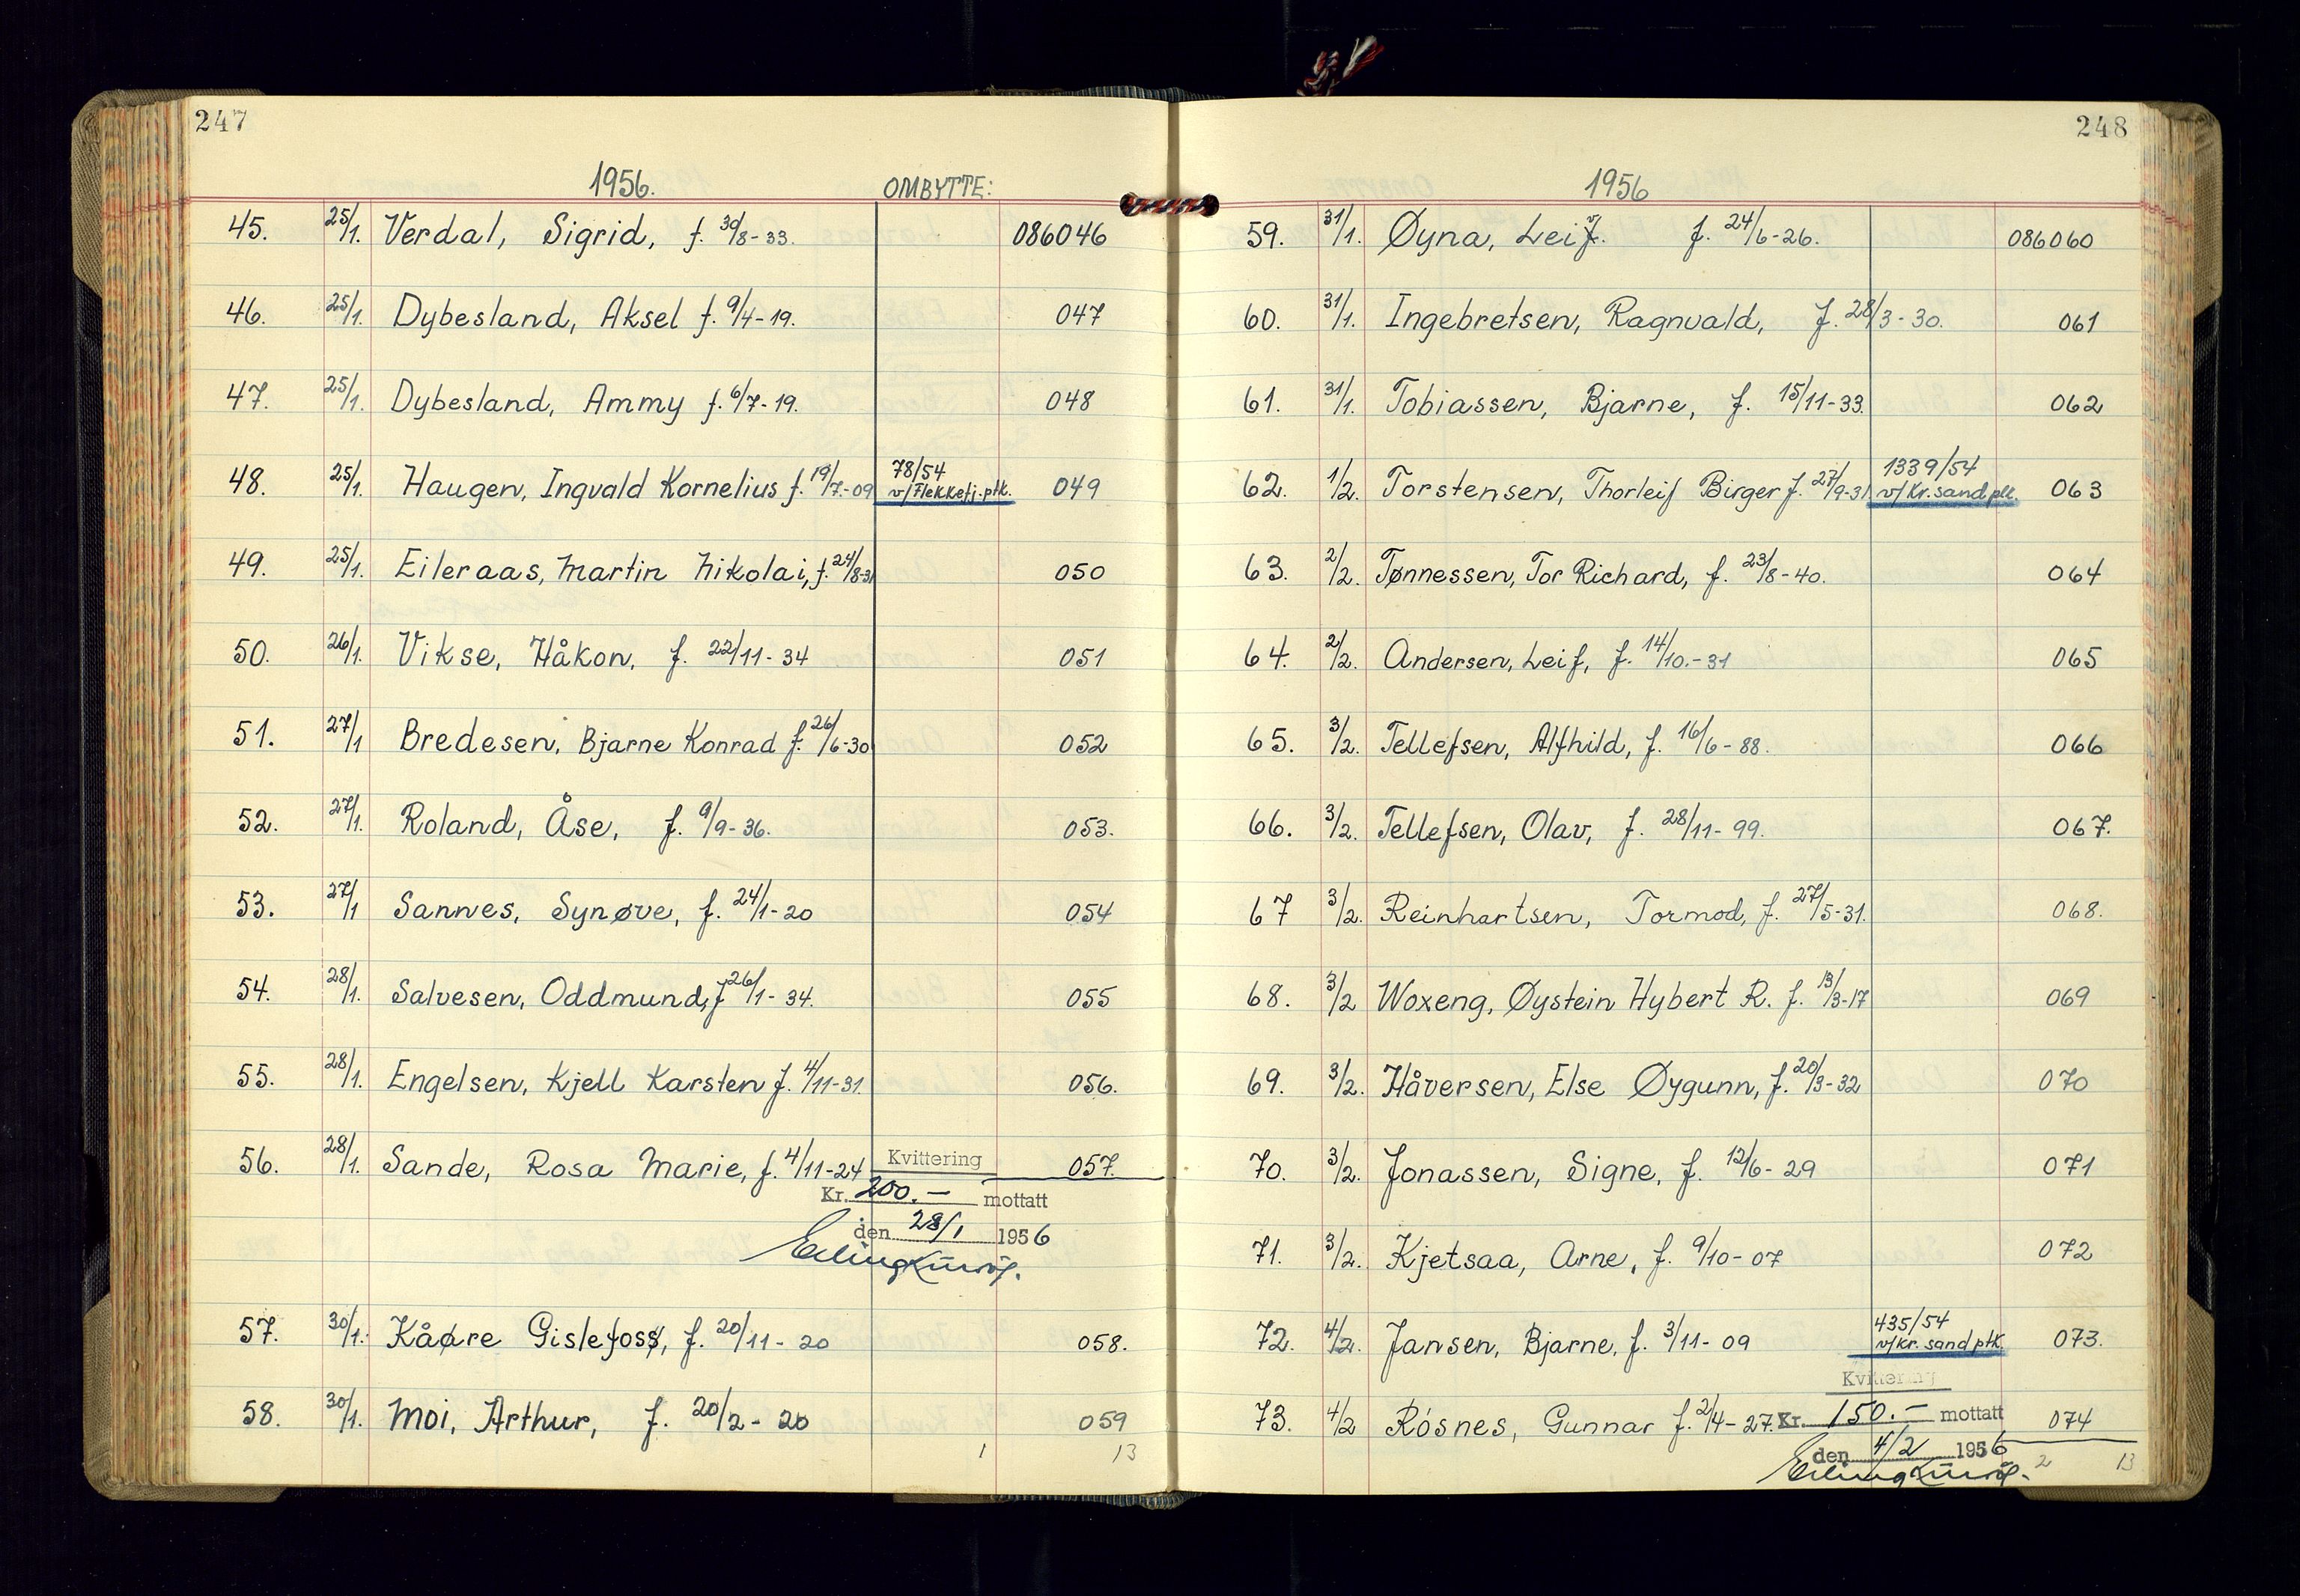 247
1956. OMBYTTE:
45. 25/1. Verdal, Sigrid, f. 30/8-33. 086046
46. 25/1. Dybesland, Aksel f. 9/4-19. 047
47. 25/1. Dybesland, Ammy f. 6/7-19. 048
48. 25/1. Haugen, Ingvald Kornelius f. 19/7.-09 78/54 v/Flekkefj.ptk. 049
49. 25/1. Eileraas, Martin Nikolai, f. 24/8-31 050
50. 26/1. Vikse, Håkon, f. 22/11-34 051
51. 27/1 Bredesen, Bjarne Konrad f. 26/6-30 052
52. 27/1. Roland, Åse, f. 9/9-36. 053.
53. 27/1 Sannes, Synøve, f. 24/1-20 054
54. 28/1. Salvesen, Oddmund, f 26/1-34. 055
55. 28/1. Engelsen, Kjell Karsten f. 4/11-31. 056.
56. 28/1. Sande, Rosa Marie, f. 4/11-24 057.
Kvittering
Kr. 200.- mottatt
den 28/1 1956
57. 30/1. Kåre Gislefoss, f. 20/11-20 058.
58. 30/1. Moi, Arthur, f. 20/2-20 059
1 13
248
1956
59. 31/1. Øyna, Leif. f. 24/6-26. 086060
60. 31/1. Ingebretsen, Ragnvald, f. 28/3-30. 061
61. 31/1. Tobiassen, Bjarne, f. 15/11-33. 062
62. 1/2. Torstensen, Thorleif Birger f. 27/9-31 1339/54 v/Kr.sand ptk. 063
63. 2/2. Tønnessen, Tor Richard, f. 23/8-40. 064
64. 2/2. Andersen, Leif, f. 14/10.-31 065
65. 3/2. Tellefsen, Alfhild, f. 16/6-88. 066
66. 3/2. Tellefsen, Olav, f. 28/11-99. 067.
67 3/2. Reinhartsen, Tormod, f. 27/5-31. 068.
68. 3/2 Woxeng, Øystein Hybert R. f. 13/3-17 069
69. 3/2. Håversen, Else Øygunn, f. 20/3-32 070
70. 3/2. Jonassen, Signe, f. 12/6-29 071
71. 3/2. Kjetsaa, Arne, f. 9/10-07 072
72. 4/2. Jansen, Bjarne, f. 3/11-09 435/54 v/Kr.sand ptk. 073.
73. 4/2 Rosnes, Gunnar f. 2/4-27. 074
Kvittering
Kr. 150.- mottatt
den 4/2 1956
2 13